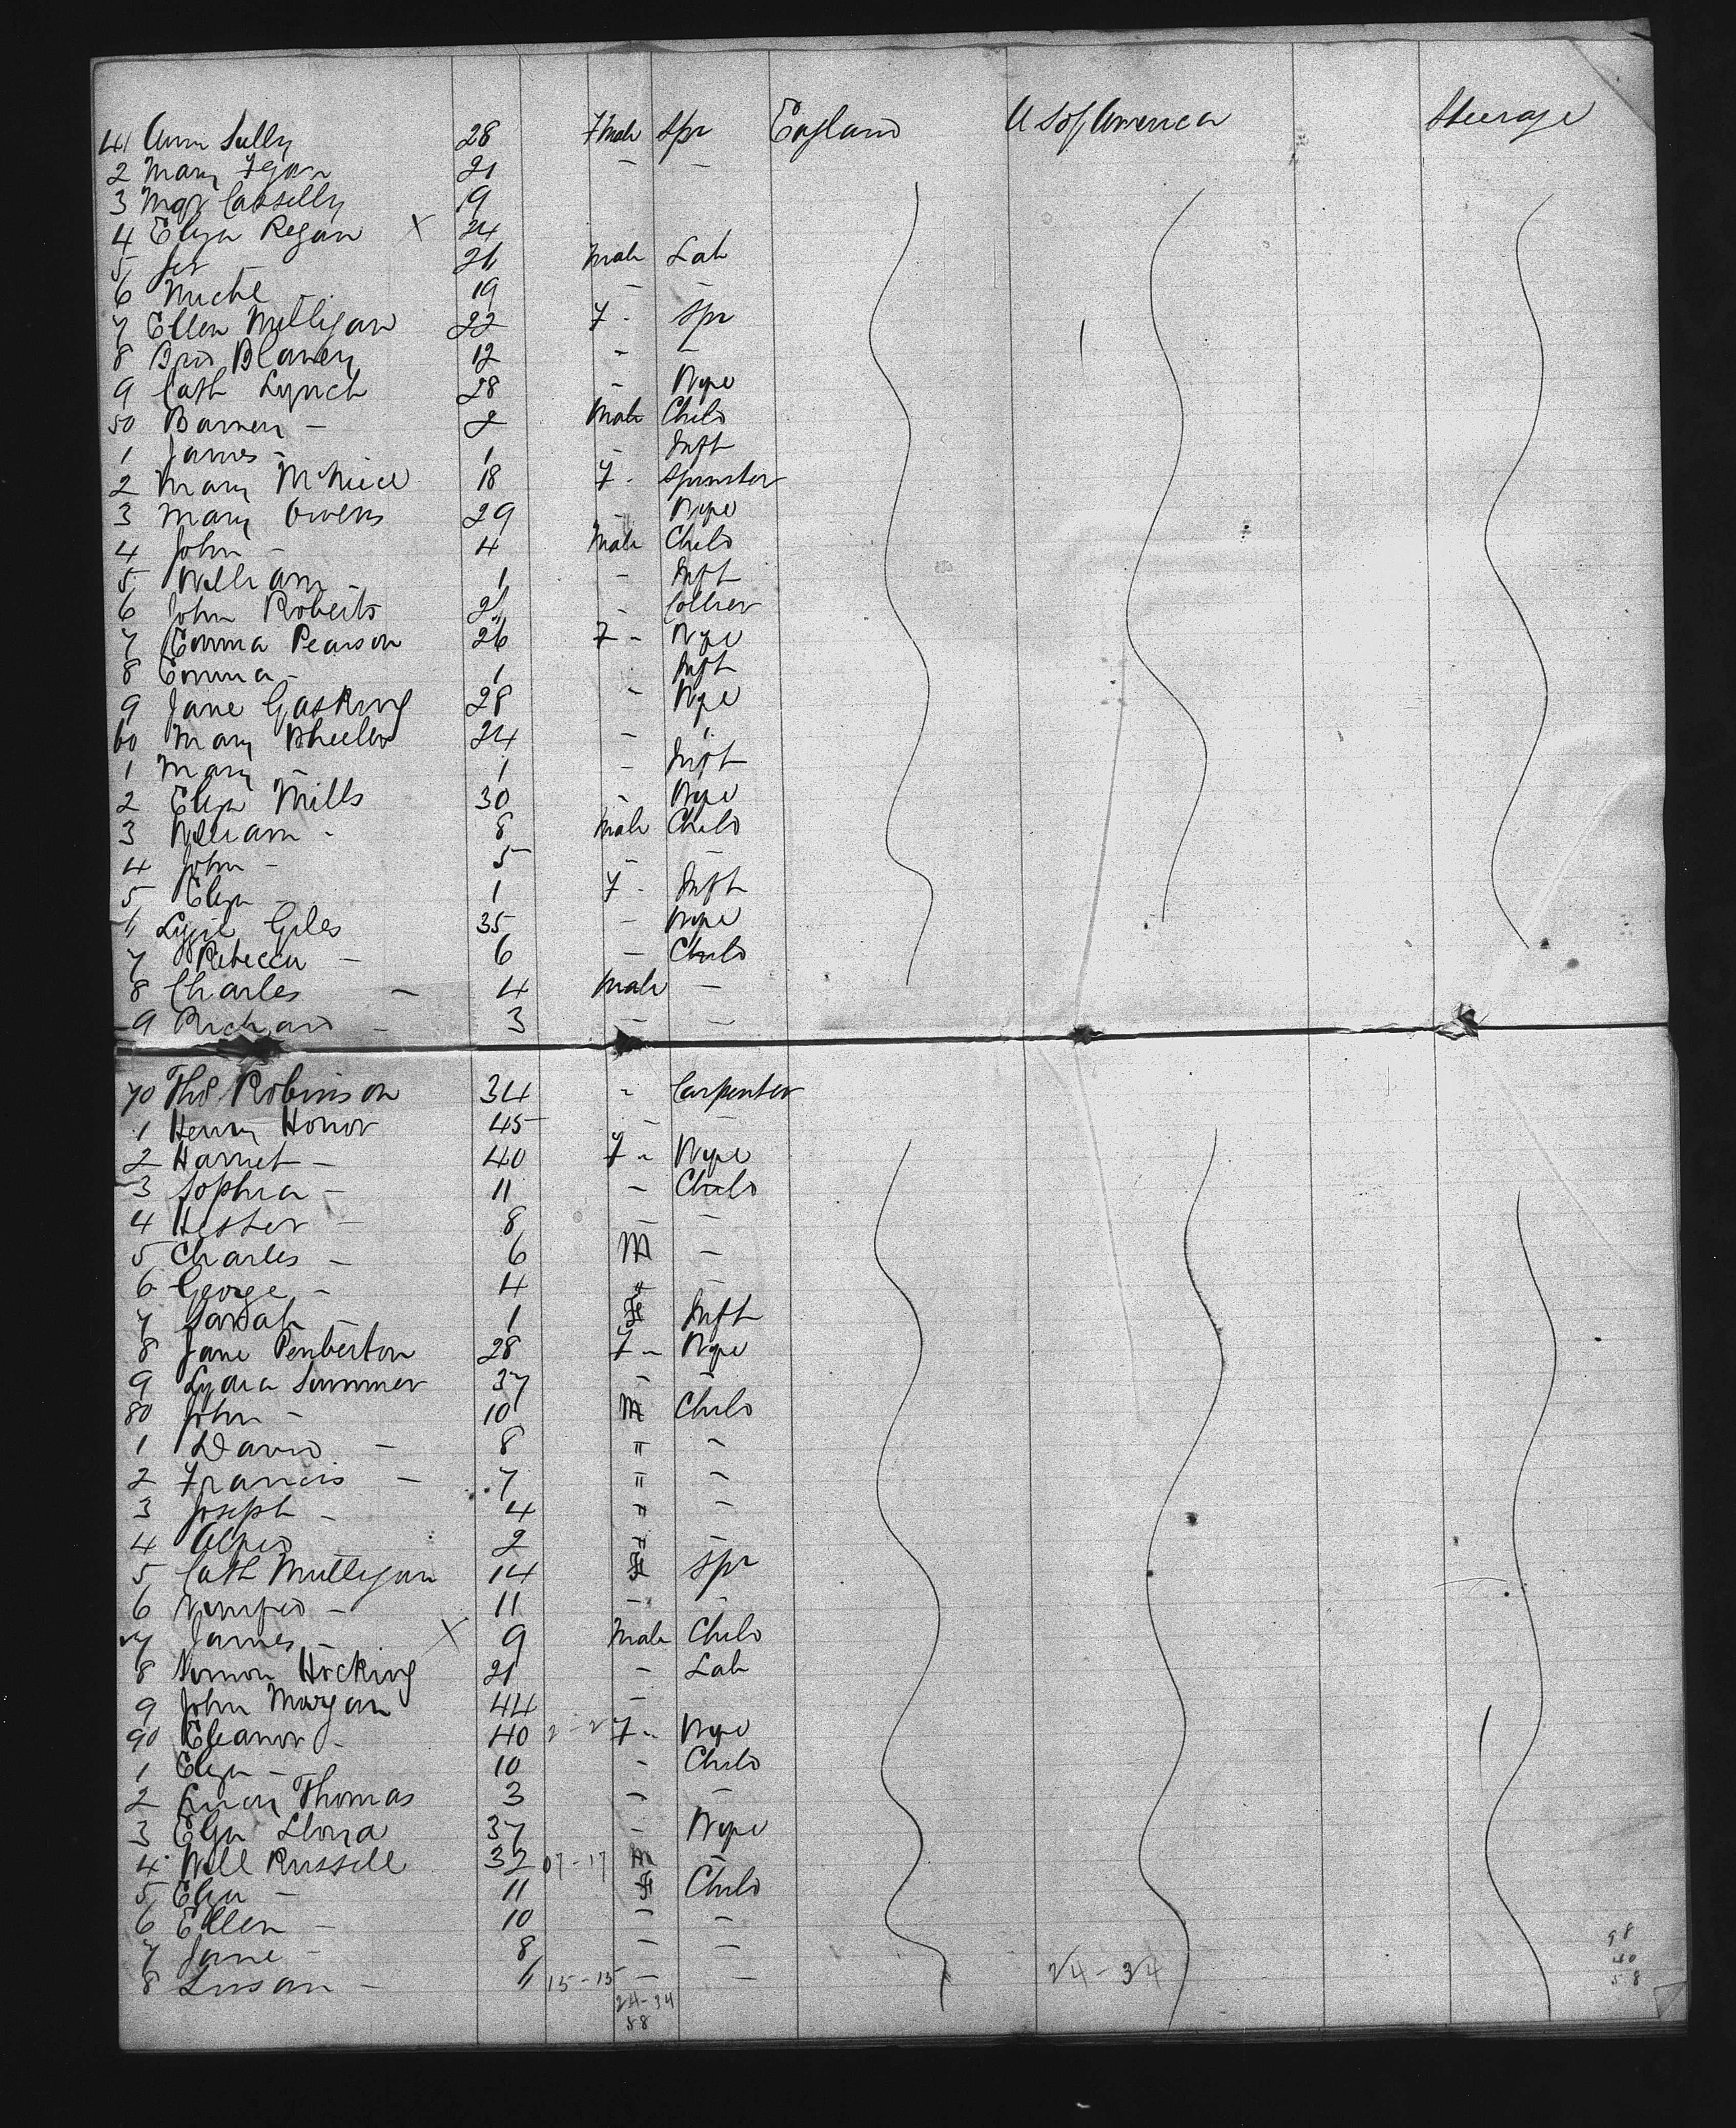 41 Ann Sully 28 Fmale Spr England U S of America Steerage
2 Mary Egan 21 - -
3 Mgt Casselly 19
4 Eliza Regan X 24
5 Jer - 26 Male Lab
6 Michl - 19 - -
7 Ellen Mulligan 22 F - Spr
8 Brid Blaney 12 - -
9 Cath Lynch 28 - Wife
50 Barney - 2 Male Child
1 James - 1 - Inft
2 Mary McNiece 18 F - Spinster
3 Mary Owens 29 - Wife
4 John - 4 Male Child
5 William - 1 - Inft
6 John Roberts 21 - Collier
7 Emma Pearson 26 F - Wife
8 Emma - 1 Inft
9 Jane Gasking 28 - Wife
60 Mary Wheeler 24 - "
1 Mary - 1 - Inft
2 Eliza Mills 30 - Wife
3 William - 8 Male Child
4 John - 5 - -
5 Eliza - 1 F - Inft
6 Lizzie Giles 35 - Wife
7 Rebecca - 6 - Child
8 Charles - 4 Male -
9 Richard - 3 - -
70 Thos Robinson 34 - Carpenter
1 Henry Honor 45 - -
2 Harriet - 40 F - Wife
3 Sophia - 11 - Child
4 Hester - 8 - -
5 Charles - 6 M -
6 George - 4 " -
7 Sarah - 1 F Inft
8 Jane Penberton 28 F - Wife
9 Lydia Summer 37 - -
80 John - 10 M Child
1 David - 8 " -
2 Francis - 7 " -
3 Joseph - 4 " -
4 Alfred 2 " -
5 Cath Mulligan 14 F Spr
6 Winifred - 11 - -
7 James - X 9 Male Child
8 Hocking 21 - Lab
9 John Morgan 44 -
90 Eleanor - 40 2 - 2 F - Wife
1 Eliza - 10 - Child
2 Lucy Thomas 3 - -
3 Eliza 37 - Wife
4 Will Russell 32 07-17 M -
5 Eliza - 11 F Child
6 Ellen - 10 - -
7 Jane - 8 - -
8 Susan - 15-15 - - 24-34
24-34
58
98
40
58